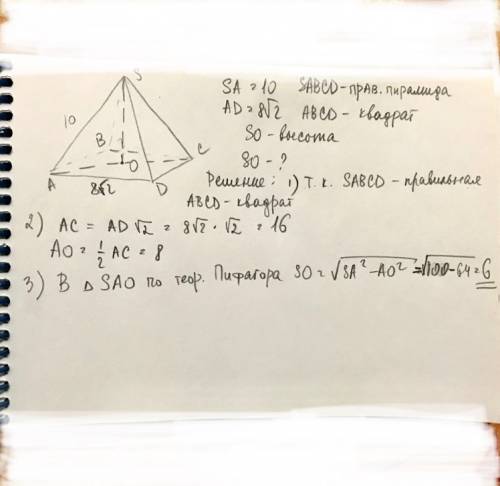 S
10
B
C
O
A
8√2
D
SA = 10 SABCD - прав. пирамида
AD = 8√2 ABCD - квадрат
SO - высота
SO - ?
Решение: 1) Т.к. SABCD - правильная
ABCD - квадрат
2) AC = AD √2 = 8√2 · √2 = 16
AO = 1/2 AC = 8
3) В △ SAO по теор. Пифагора SO = √SA² - AO² = √100 - 64 = 6